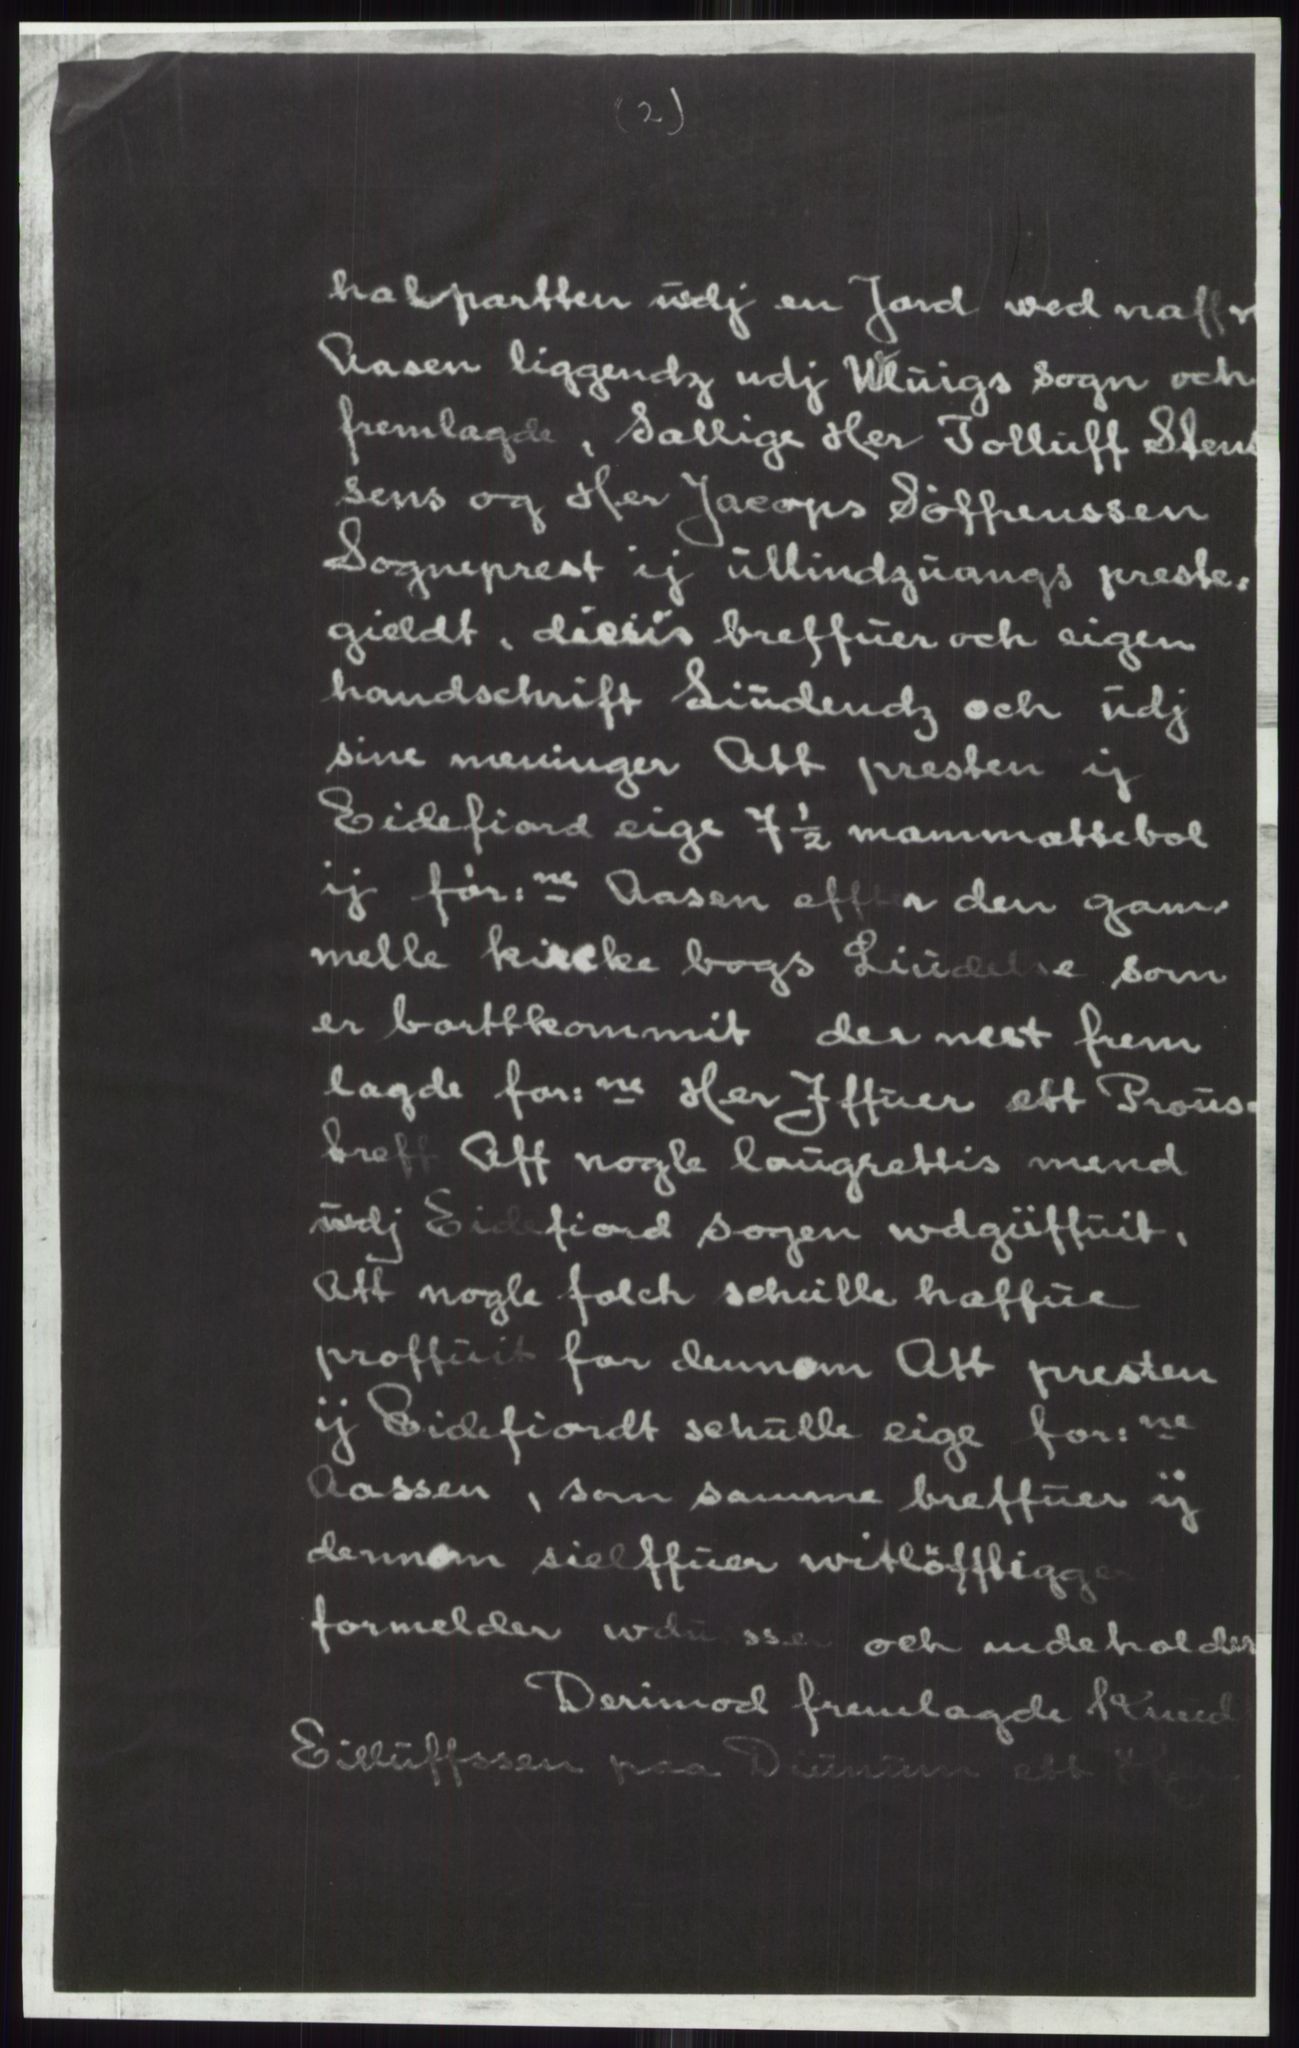 (2)
halpartten ūdj en Jord wed naffn
Aasen liggendz udj Wlūigs sogn och
fremlagde, Sallige Her Tolluff Stens
sens og Her Jacops Söffrenssen
Sogneprest ij ūllindzūangs preste-
gieldt, dieris breffūer och eigen
handschrift Liūdendz och ūdj
sine meninger Att presten ij
Eidefiord eige 7 1/2 mammattebol
ij för:ne Aasen effter den gam-
melle kircke bogs Liūdelse som
er borttkommit der nest frem
lagde for:ne Her Iffūer ett Proūs-
breff Aff nogle laūgrettis mend
ūdj Eidefiord sogen wdgūffūit,
Att nogle folch schūlle haffūe
proffūit for dennom Att presten
ij Eidefiordt schūlle eige for:ne
Aassen, som samme breffūer ij
dennom sielffūer witlöffligger
formelder och indeholder
Derimod fremlagde Knud
Eilluffssen paa ett